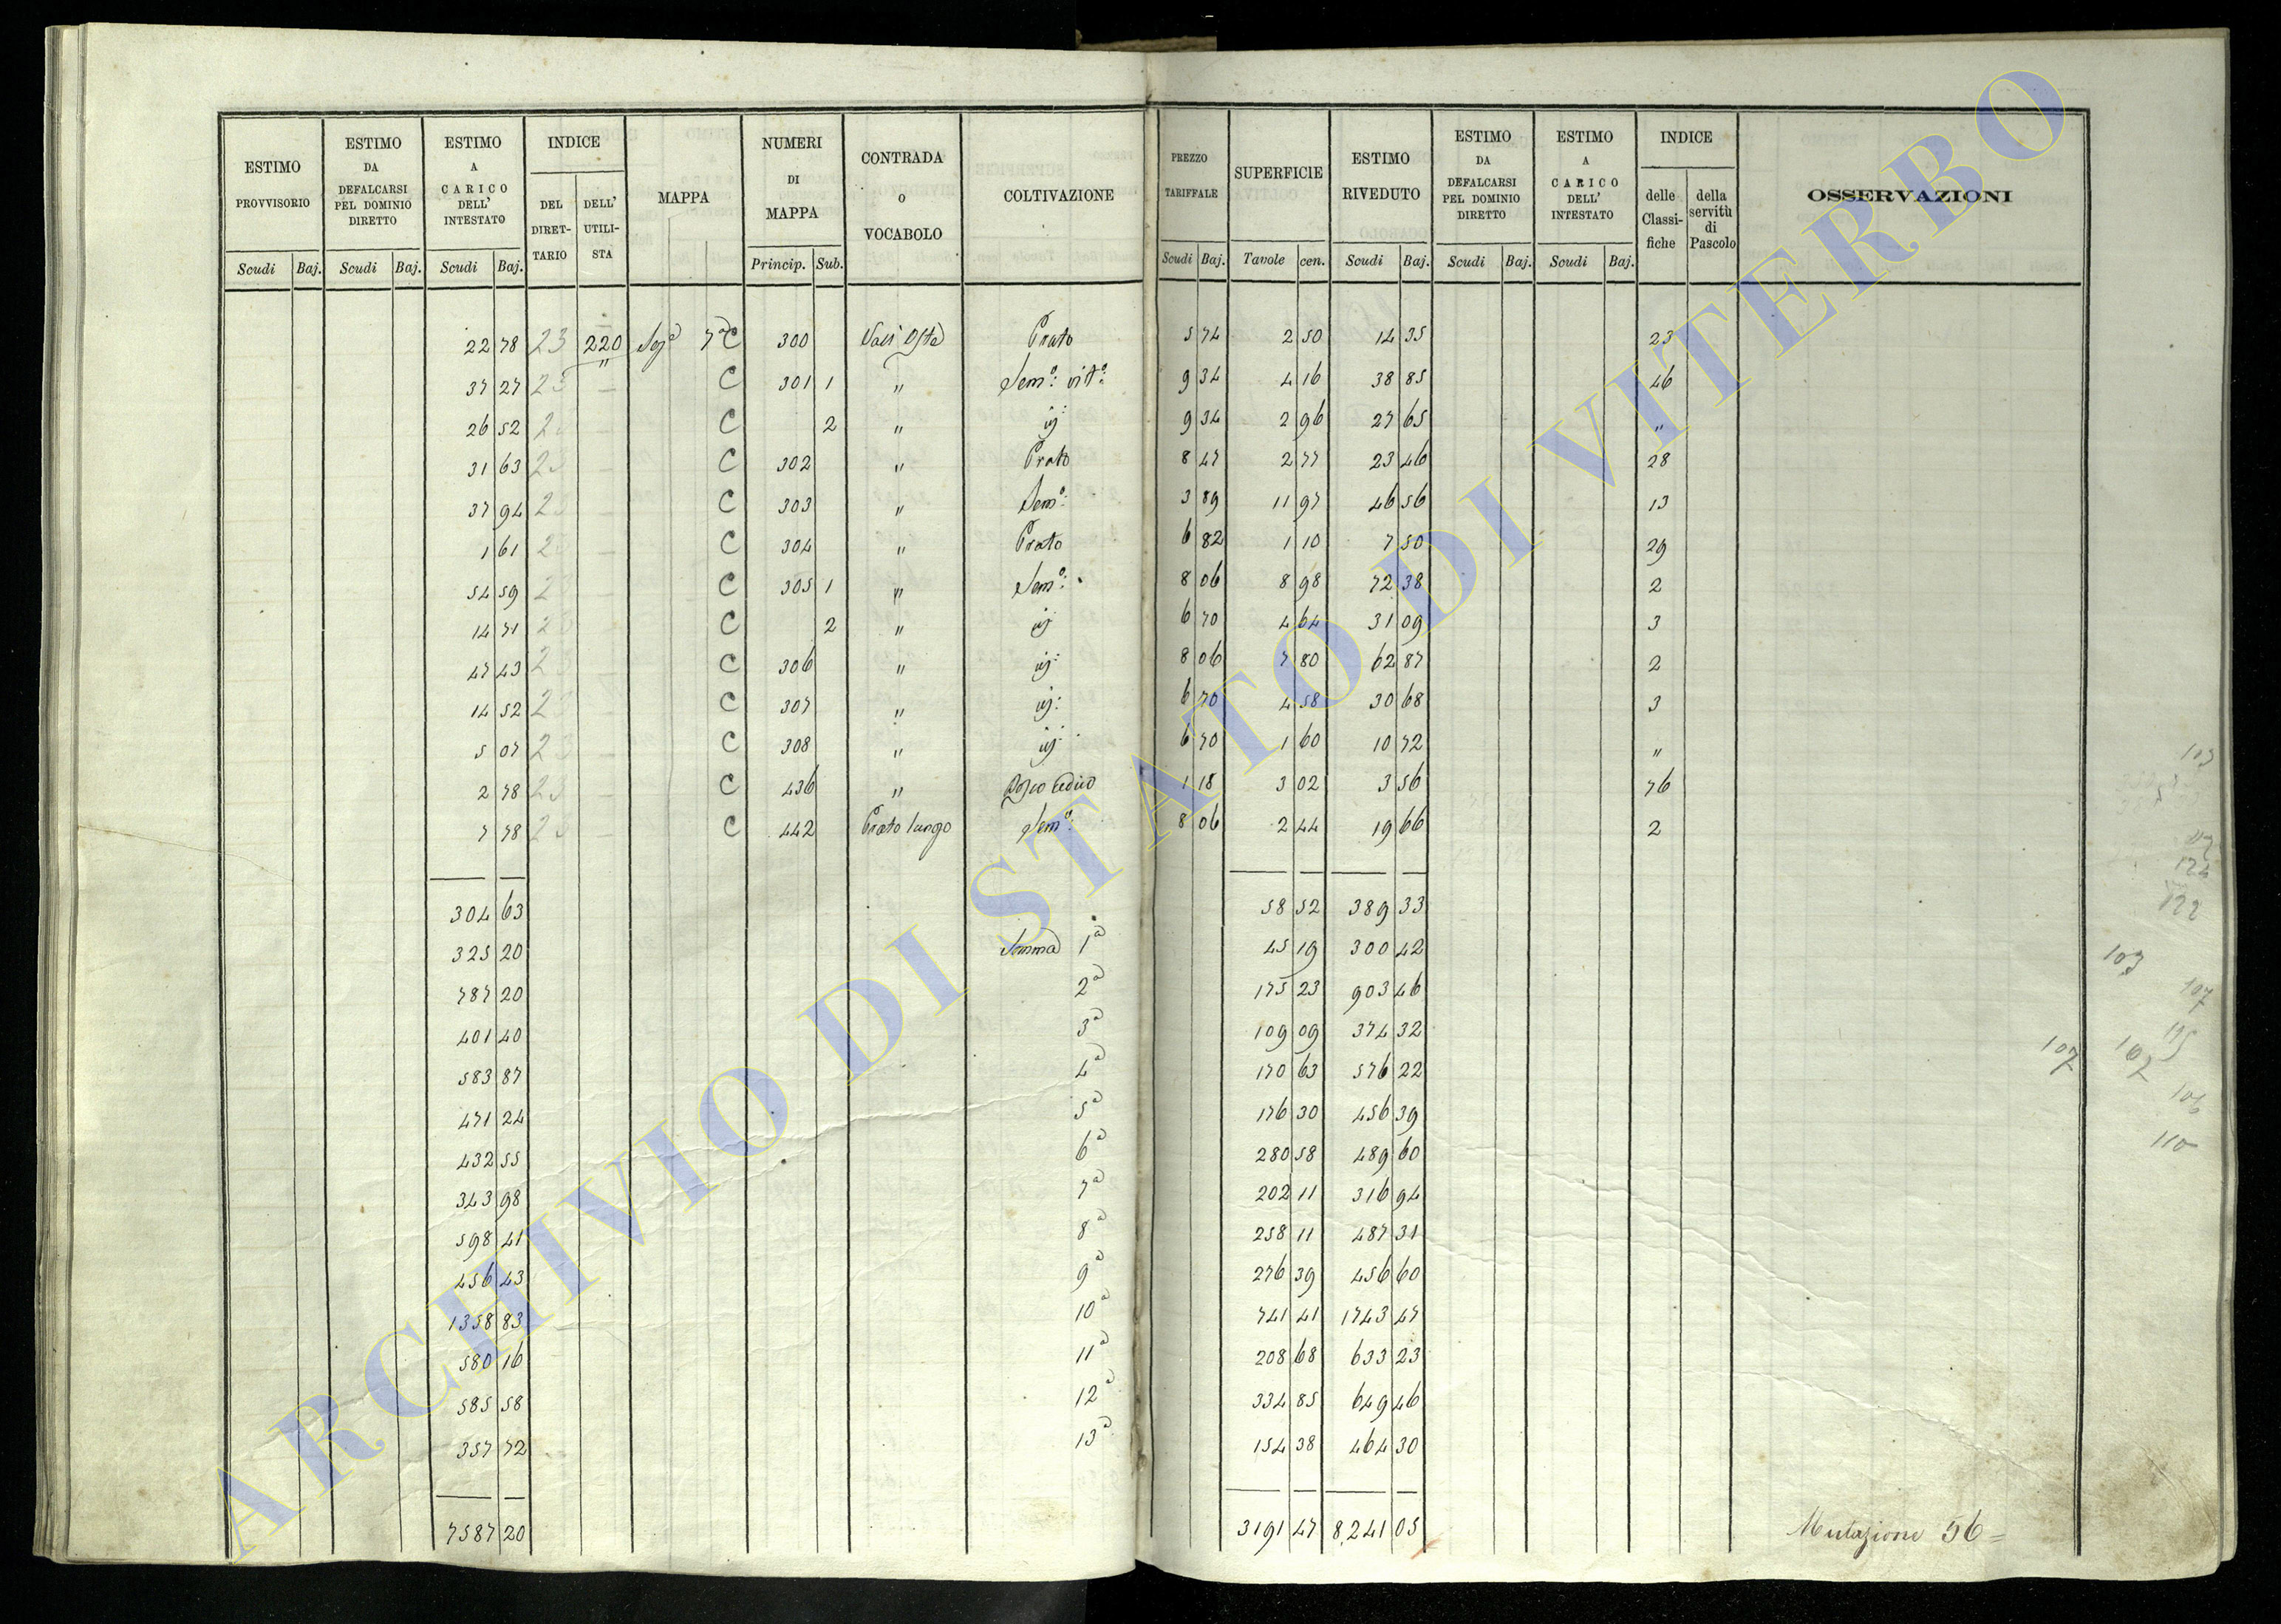 ESTIMO PROVVISORIO | ESTIMO DA DEFALCARSI PEL DOMINIO DIRETTO | ESTIMO A CARICO DELL' INTESTATO | INDICE DEL DIRETTARIO | DELL' UTILISTA | MAPPA | NUMERI DI MAPPA | CONTRADA o VOCABOLO | COLTIVAZIONE | PREZZO TARIFFALE | SUPERFICIE | ESTIMO RIVEDUTO | ESTIMO DA DEFALCARSI PEL DOMINIO DIRETTO | ESTIMO A CARICO DELL' INTESTATO | INDICE delle Classifiche | della servitù di Pascolo | OSSERVAZIONI
Scudi Baj. Scudi Baj. Scudi Baj. Princip. Sub. Scudi Baj. Tavole cen. Scudi Baj. Scudi Baj. Scudi Baj.
22 78 23 220 7ª C 300 Prato 5 74 2 50 14 35 23
37 27 23 " C 301 1 " Semº: vitº: 9 34 4 16 38 85 46
26 52 23 C 2 " 9 34 2 96 27 65 "
31 63 23 C 302 " Prato 8 47 2 77 23 46 28
37 94 23 C 303 " Semº: 3 89 11 97 46 56 13
1 61 23 C 304 " Prato 6 82 1 10 7 50 29
54 59 23 C 305 1 " Semº: 8 06 8 98 72 38 2
14 71 23 C 2 " 6 70 4 64 31 09 3
47 43 23 C 306 " 8 06 7 80 62 87 2
14 52 23 C 307 " 6 70 4 58 30 68 3
5 07 23 C 308 " 6 70 1 60 10 72 "
2 78 23 C 436 " Bosco ceduo 1 18 3 02 3 56 76
7 78 23 C 442 Prato lungo Semº: 8 06 2 44 19 66 2
304 63 58 52 389 33
325 20 Somma 1ª 45 19 300 42
787 20 2ª 175 23 903 46
401 40 3ª 109 09 374 32
583 87 4ª 170 63 576 22
471 24 5ª 176 30 456 39
432 55 6ª 280 58 489 60
343 98 7ª 202 11 316 94
598 41 8ª 258 11 487 31
456 43 9ª 276 39 456 60
1358 83 10ª 741 41 1743 47
580 16 11ª 208 68 633 23
585 58 12ª 334 85 649 46
357 72 13ª 154 38 464 30
7587 20 3191 47 8,241 05 Mutazione 56 =
103
124
122
103
107
115
107 102
106
110
ARCHIVIO DI STATO DI VITERBO